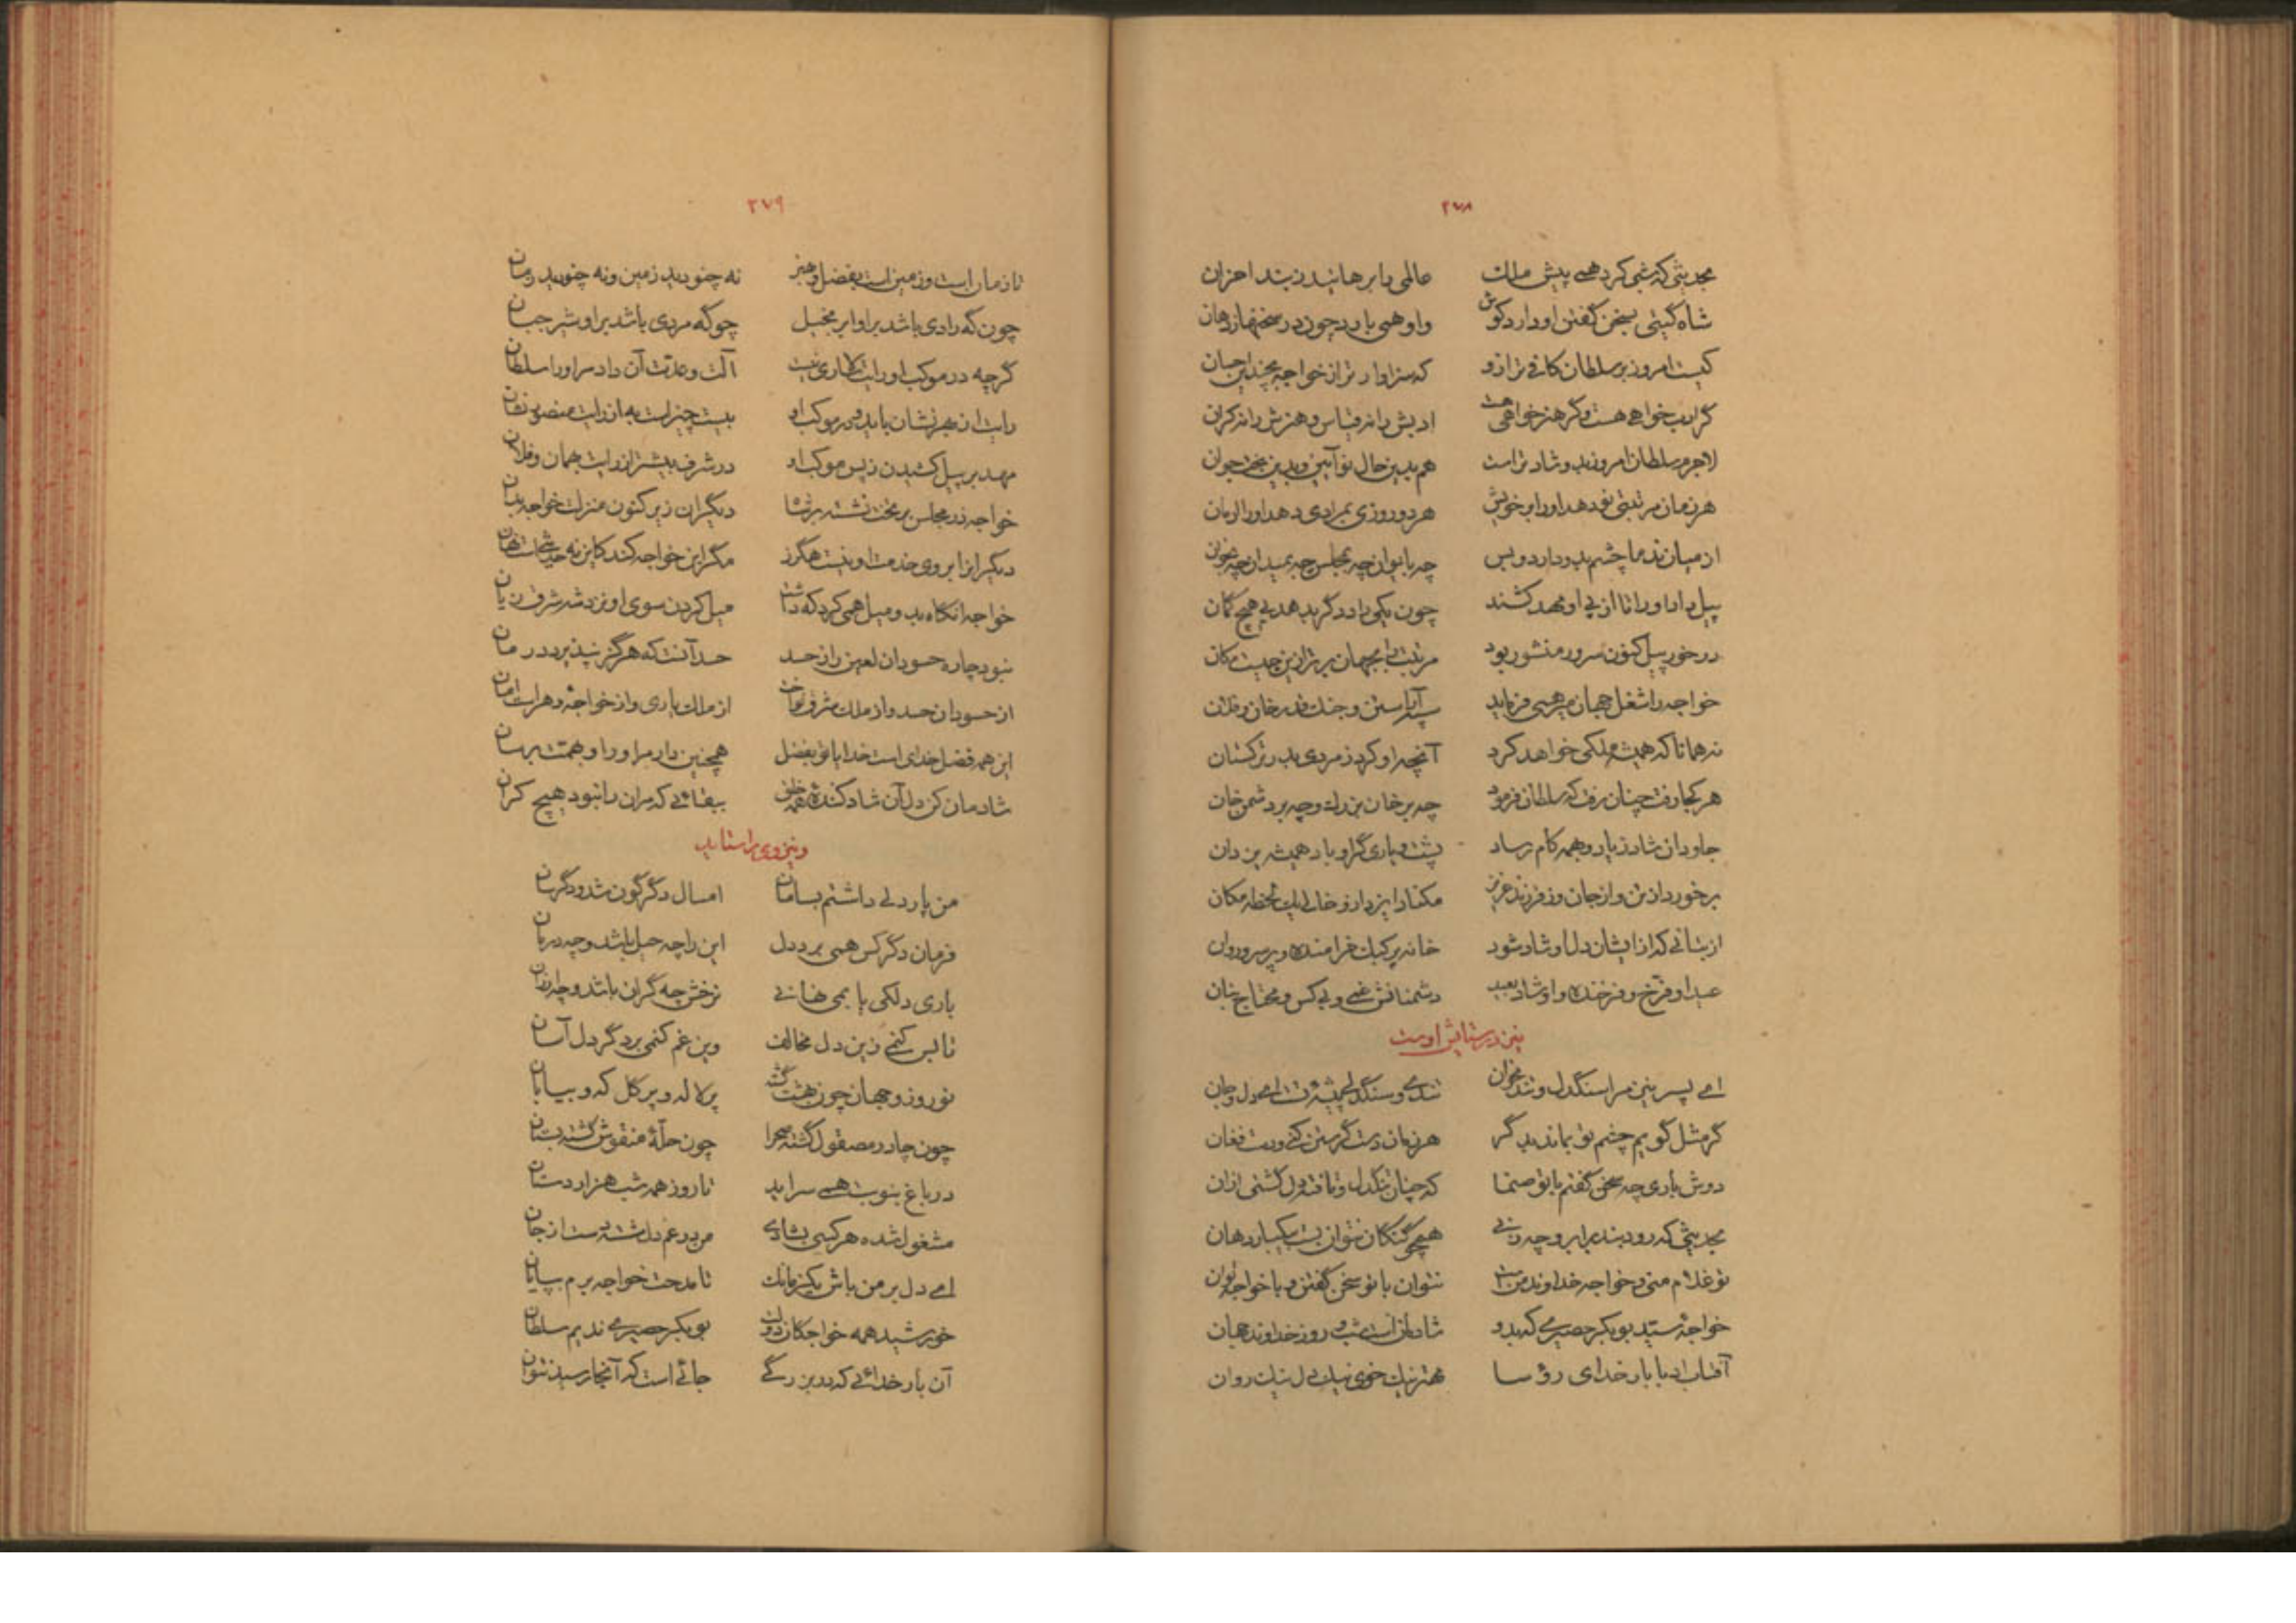 ۲۷۸
بحدیثی که شبی کرد همی پیش ملک عالمی را برهانید ز بند احزان
شاه گیتی بسخن گفتن او دارد گوش واو همی بارد چون در سخنها ز دهان
کیست امروز بر سلطان کافی تر ازو که سزاوارتر از خواجه بچندین احسان
گر ادب خواهی هست و گر هنر خواهی هست ادبش را نه قیاس و هنرش را نه کران
لاجرم سلطان امروز بدو شادترست هم بدین حال نو آیین و بدین بخت جوان
هر زمان مرتبتی نو دهد او را بر خویش هر دو روزی بمرادی دهد او را فرمان
از میان ندما چشم بدو دارد و بس چه بایوان چه بمجلس چه بمیدان چه بخوان
پیل داد او را تا از پی او مهد کشند چون یکی داد دگر بدهد بی هیچ گمان
در خور پیل کنون سرور منشور بود مرتبت بجهان برتر ازین چیست بدان
خواجه را شغل جهان میر همی فرماید سپه آراستن و جنگ قدر خان و فلان
نه همانا که همیشه ملکی خواهد کرد آنچه او کرد ز مردی بدر ترکستان
هر کجا رفت چنان رفت که سلطان فرمود چه بر خان بزرگ و چه بر دشمن خان
جاودان شاد زیاد و بهمه کام رساد پشت و یاری گر او باد همیشه یزدان
برخوراد از تن و از جان و ز فرزند عزیز مکناد ایزد ازو خالی یک لحظه مکان
از بتانی که از ایشان دل او شاد شود خانه پر کبک خرامنده و پر سرو روان
عید او فرخ و فرخنده و او شاد بعید دشمنانش غمی و بی کس و محتاج بنان
نیز در ستایش اوست
ای پسر نیز مرا سنگدل و تند مخوان تندی و سنگدلی پیشهٔ تست ای دل و جان
گر مثل گویم چشم تو بماند بدگر هر زمان دست گریستن کنی و دست فغان
دوش باری چه سخن گفتم با تو صنما که چنان تنگدل و تافته دل گشتی ازان
بحدیثی که رود بند بر ابرو چه زنی همچو گنگان نتوان بست بیکبار دهان
تو غلام منی و خواجه خداوند منست نتوان با تو سخن گفتن و با خواجه توان
خواجهٔ سید بوبکر حصیری که بدو شادمان است شب و روز خداوند جهان
آفتاب ادبا بار خدای رؤسا مهتر نیک خوی نیک دل نیک روان
۲۷۹
تا زمان است و زمین است بفضل و هنر نه چنو دید زمین و نه چنو دید زمان
چون گه رادی باشد بر او ابر بخیل چو گه مردی باشد بر او شیر جبان
گرچه در موکب او رایت کاری نیست آلت و عدت آن داد مر او را سلطان
رایت از بهر نشان باید در موکب او بیست چیزست به از رایت منصور نشان
مهد بر پیل کشیدن ز پس موکب او در شرف بیشتر از رایت بهمان و فلان
خواجه در مجلس بر تخت نشسته بر شاه دیگران زیر کنون منزلت خواجه بدان
دیگران را بروی خدمت او نیست هگرز مگر این خواجه کند کاین نه حدیثیست نهان
خواجه آنگاه بدو میل همی کرد که داشت میل کردن سوی او نزد شه شرق زیان
نبود چاره حسودان لعین را ز حسد حسد آنست که هرگز نپذیرد درمان
از حسودان حسد و از ملک شرق نواخت از ملک یاری و از خواجهٔ دهر است امان
این همه فضل خدای است خدایا تو بفضل همچنین دار مر او را و بهمت برسان
شادمان کن دل آن شاد کنندهٔ همه خلق ببقائی که مر آن را نبود هیچ کران
و نیز وی را ستاید
من پار دلی داشتم بسامان امسال دگرگون شد و دگرسان
فرمان دگر کس همی برد دل این را چه حیل باشد و چه درمان
باری دلکی یابمی نهانی نرخش چه گران باشد و چه ارزان
تا بس کنمی زین دل مخالف وین غم کنمی بر دگر دل آسان
نوروز و جهان چون بهشت گشته پر لاله و پر گل که و بیابان
چون چادر مصقول گشته صحرا چون حلهٔ منقوش گشته بستان
در باغ بنوبت همی سراید تا روز همه شب هزار دستان
مشغول شده هر کسی بشادی من در غم دل دست شسته از جان
ای دل بر من باش یکزمانک تا مدحت خواجه برم بپایان
خورشید همه خواجکان دولت بوبکر حصیری ندیم سلطان
آن بار خدائی که در بزرگی جائی است که آنجا رسید نتوان